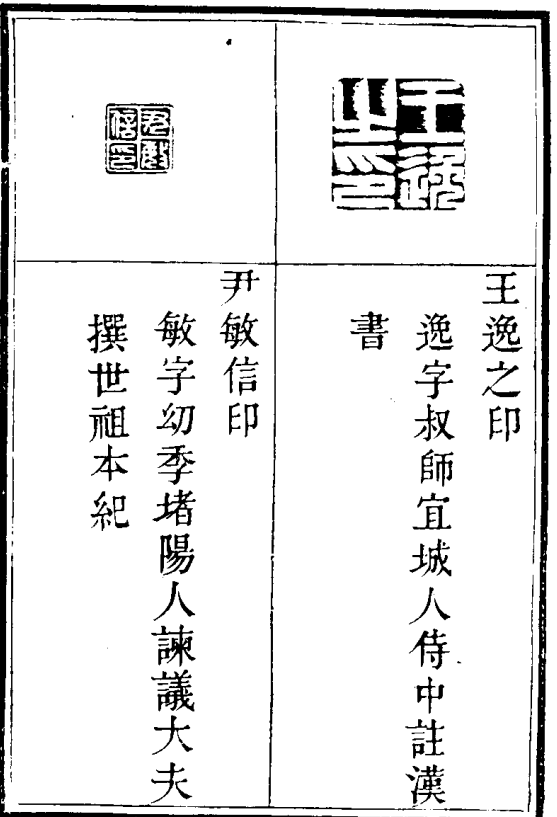 王逸之印
王逸之印
逸字叔師宜城人侍中註漢
書
尹敏信印
尹敏信印
敏字幼季堵陽人諫議大夫
撰世祖本紀